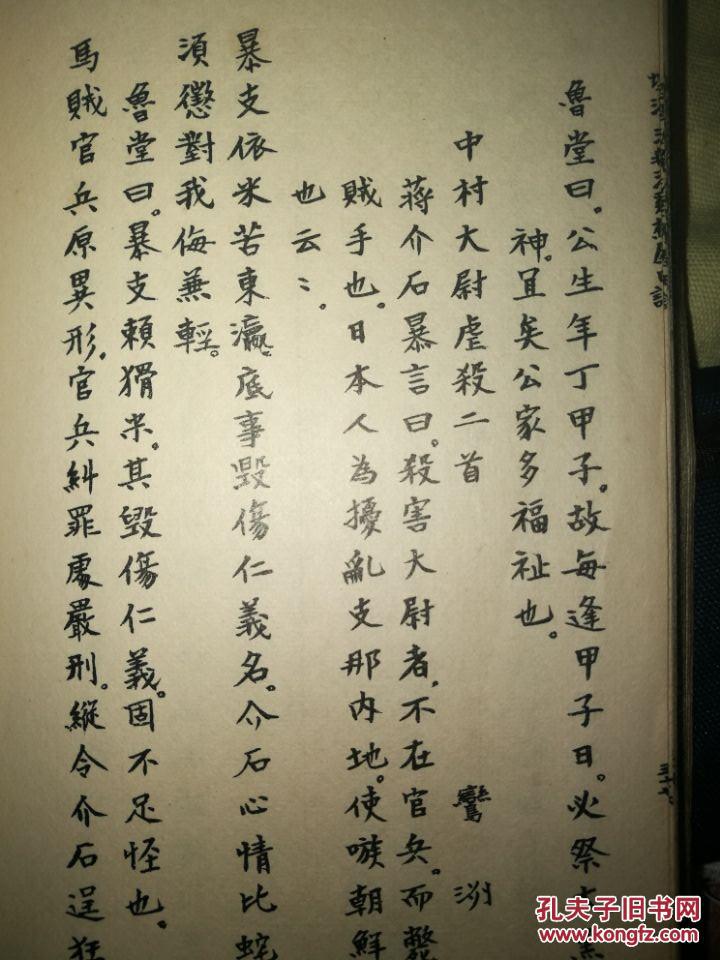 魯堂曰。公生年丁甲子。故每逢甲子日。必祭
神。宜矣公家多福祉也。
中村大尉虐殺二首 鸞洲
蔣介石暴言曰。殺害大尉者,不在官兵。而斃
賊手也。日本人為擾亂支那内地。使嗾朝鮮
也云〻。
暴支依米苦東瀛。底事毀傷仁義名。介石心情比蛇
須懲對我侮兼輕。
魯堂曰。暴支賴猾米。其毀傷仁義。固不足怪也。
馬賊官兵原異形,官兵糾罪處嚴刑。縱令介石逞狂
孔夫子旧书网
www.kongfz.com